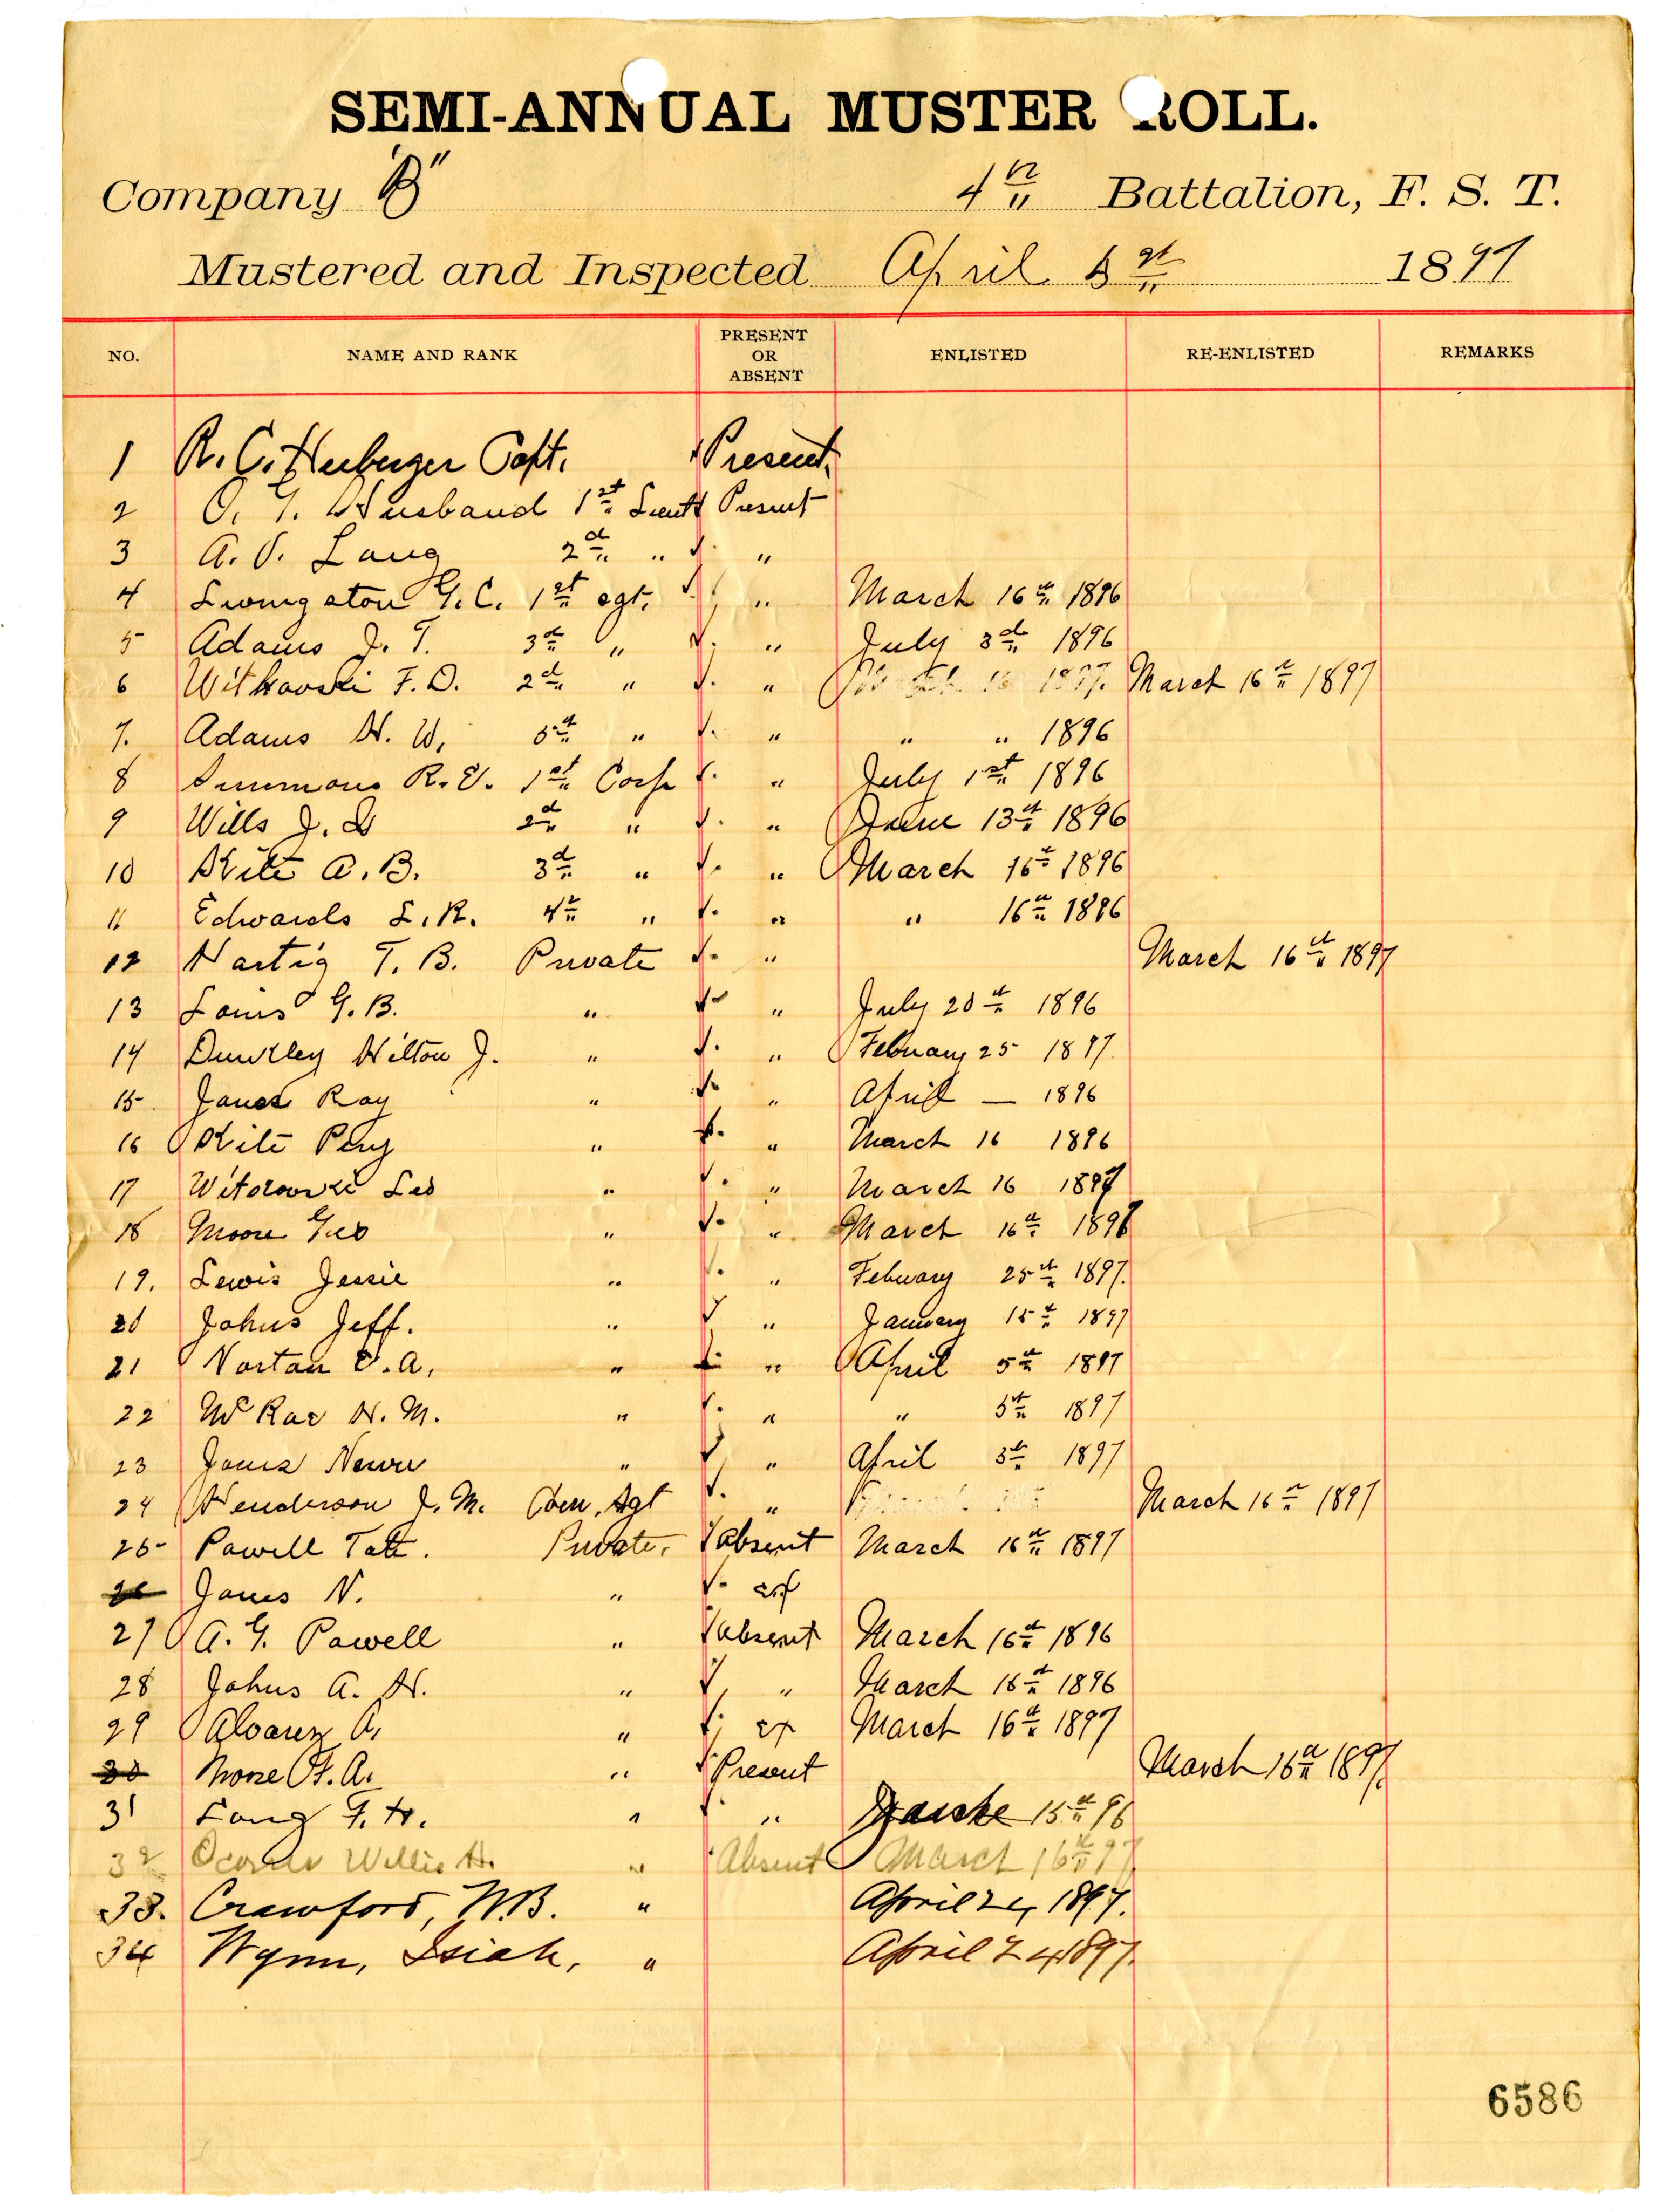 SEMI-ANNUAL MUSTER ROLL.
Company "B" 4th Battalion, F. S. T.
Mustered and Inspected April 1897
NO. NAME AND RANK PRESENT OR ABSENT ENLISTED RE-ENLISTED REMARKS
1 R. C. Neuberger Capt. Present.
2 O. T. Husband 1st Lieut Present
3 A. V. Long 2d " "
4 Livingston G. C. 1st sgt. " March 16th 1896
5 Adams J. T. 3d " " July 3d 1896
6 Witkovski F. D. 2d " " March 16th 1897
7. Adams H. W. 5th " " " " 1896
8 Simmons R. E. 1st Corp " July 1st 1896
9 Wills J. D 2d " " June 13th 1896
10 Kite A. B. 3d " " March 16th 1896
11 Edwards L. R. 4th " " " 16th 1896
12 Hartig T. B. Private " March 16th 1897
13 Louis G. B. " " July 20th 1896
14 Dunkley Hilton J. " " February 25 1897.
15 Jones Ray " " April — 1896
16 Kite Pery " " March 16 1896
17 Leo " " March 16 1897
18 Moore Geo " " March 16th 1896
19. Lewis Jessie " " Febuary 25th 1897.
20 Johns Jeff. " " January 15th 1897
21 Nortan E. A. " " April 5th 1897
22 McRae H. M. " " " 5th 1897
23 Jones " " April 1897
24 Henderson J. M. Sgt " March 16th 1897
25 Powell Tate. Private. absent March 16th 1897
26 Jones N. " ex
27 A. G. Powell " absent March 16th 1896
28 Johns A. H. " " March 16th 1896
29 Alvarez A. " ex March 16th 1897
30 Moore F. A. " Present March 16th 1897.
31 Long F. H. " " 15th 96
32 Willis H. " Absent March 16th 97
33. Crawford, W.B. " April 24, 1897.
34 Wynn, Isiah, " April 24 1897.
6586